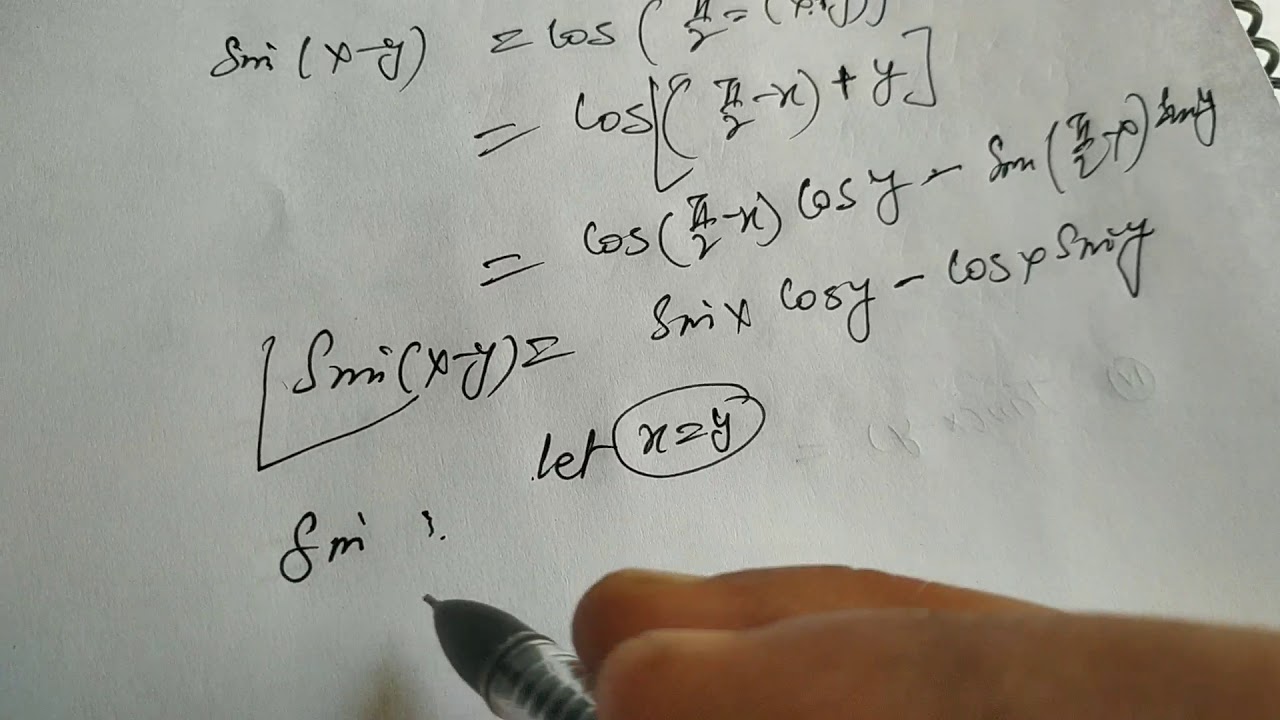 Sin (x-y) = cos (π/2 - (x-y))
= Cos[(π/2 - x) + y]
= Cos(π/2 - x) Cos y - Sin(π/2 - x) Sin y
Sin(x-y) = Sin x Cos y - Cos x Sin y
let x = y
Sin